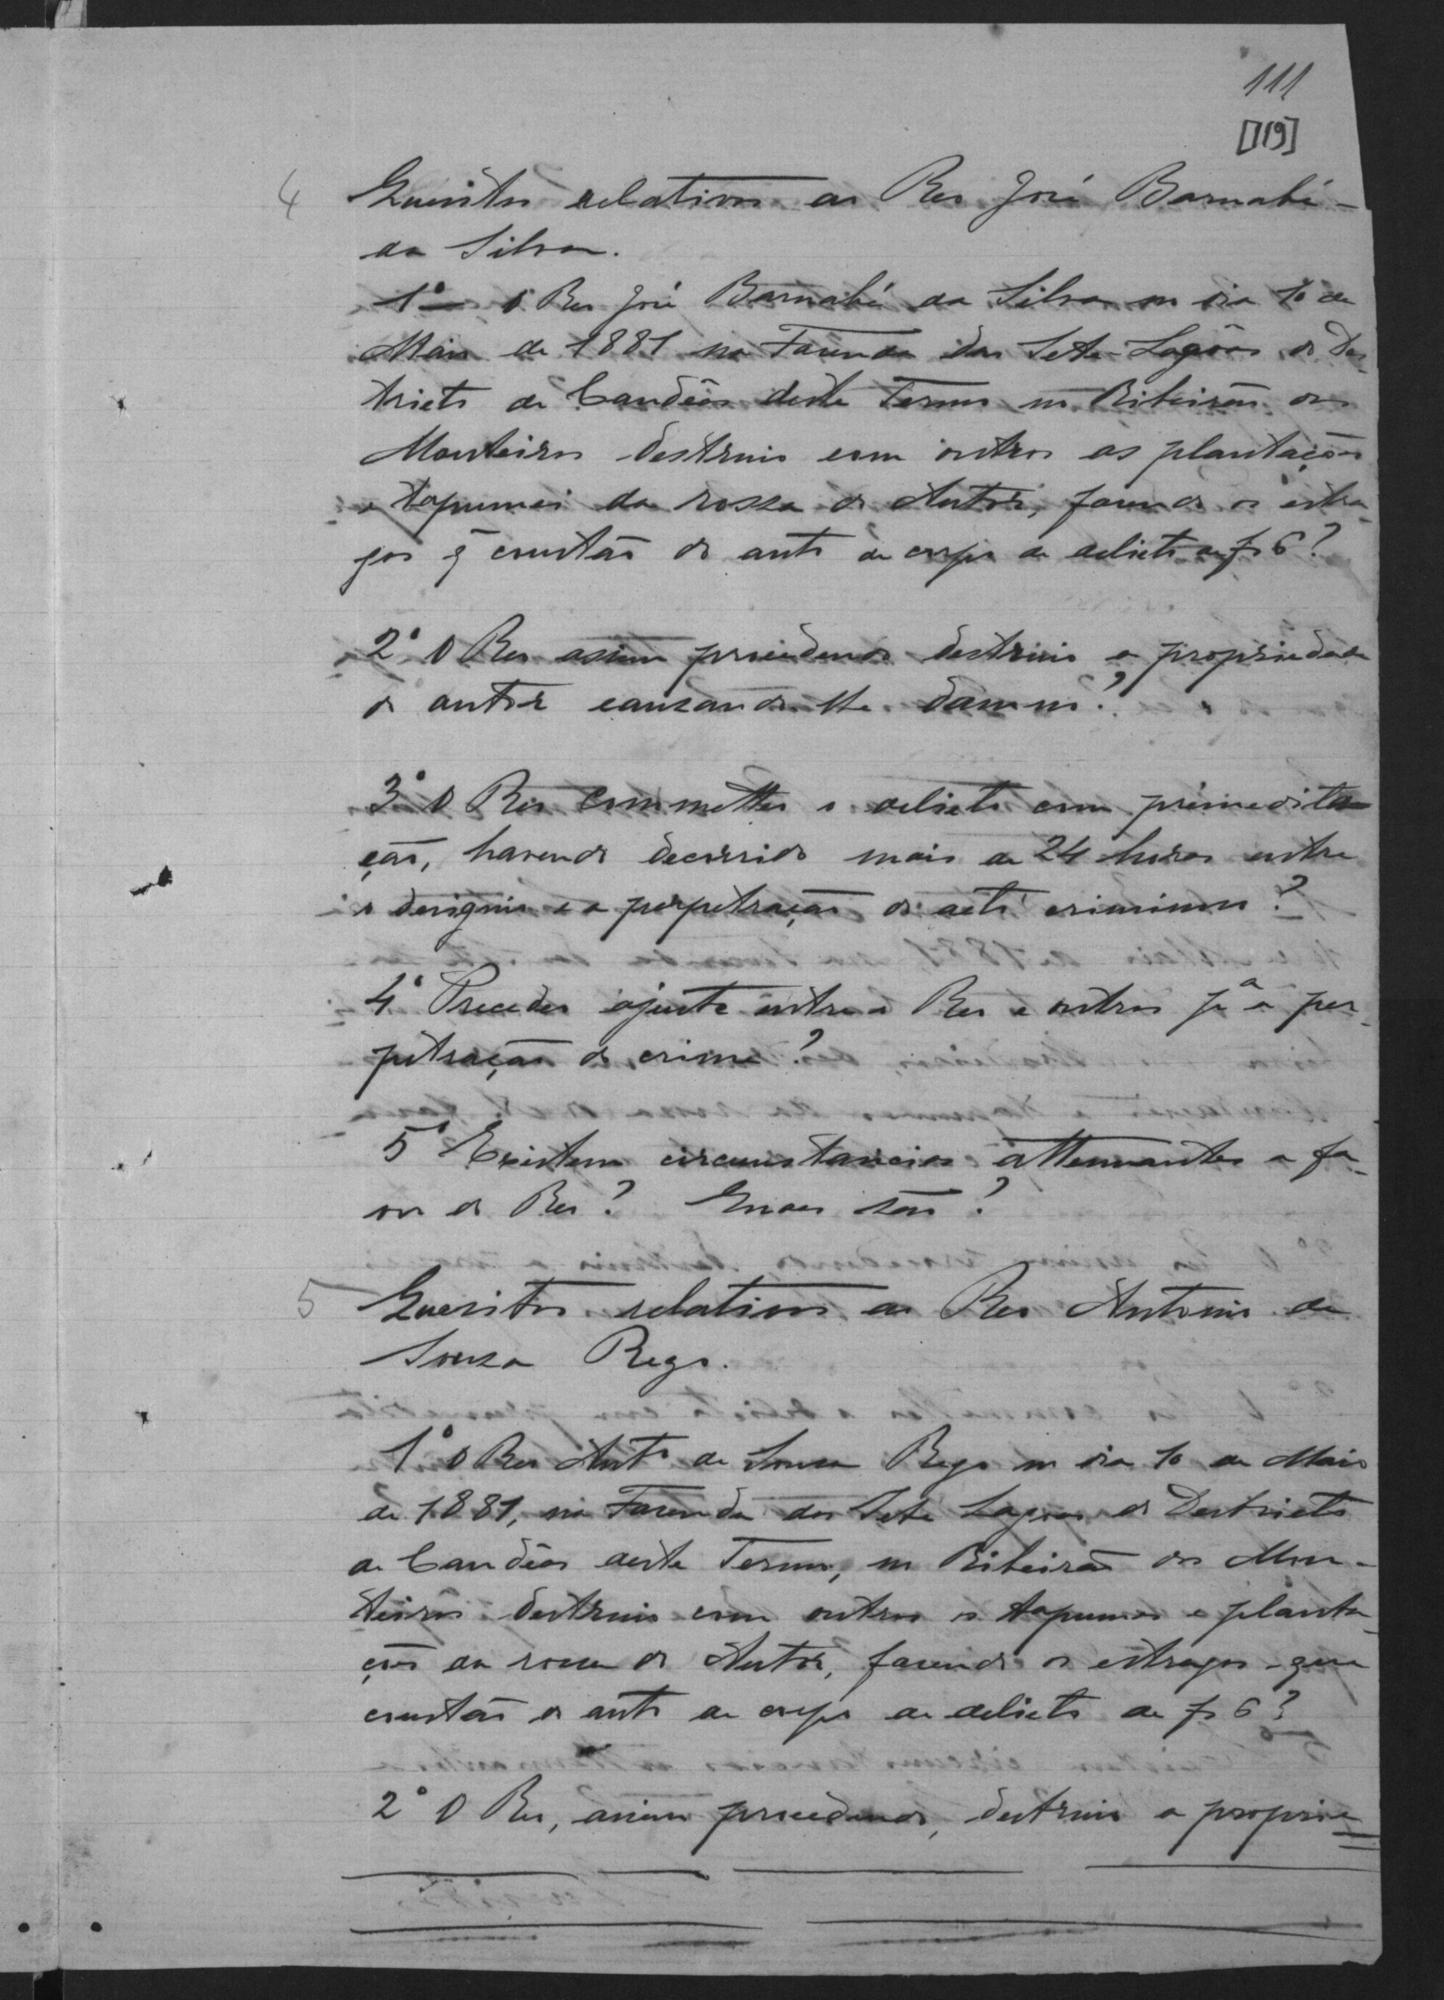 111
[119]
4 Quesitos relativos ao Reo José Barnabé
da Silva.
1º O Reo José Barnabé da Silva no dia 10 de
Maio de 1881 na Fazenda das Sete Lagôas do Des-
tricto de Candêas deste Termo no Ribeirão dos
Monteiros destruio com outros as plantações
e tapumes da rossa do Autor, fazendo os estra-
gos q constão do auto de corpo de delicto de fs 6?
2º O Reo assim procedendo destruio a propriedade
do autor causando-lhe damno?
3º O Reo commetteu o delicto com premedita-
ção, havendo decorrido mais de 24 horas entre
o designio e a perpetração do acto criminoso?
4º Precedeu ajuste entre o Reo e outros pª a per-
petração do crime?
5º Existem circumstancias attenuantes a fa-
vor do Reo? Quaes são?
5 Quesitos relativos ao Reo Antonio de
Souza Rego.
1º O Reo Antº de Souza Rego no dia 10 de Maio
de 1881, na Fazenda das Sete Lagoas do Destricto
de Candêas deste Termo, no Ribeirão dos Mon-
teiros destruio com outros os tapumes e planta-
ções da rossa do Autor, fazendo os estragos que
constão do auto de corpo de delicto de fs 6?
2º O Reo, assim procedendo, destruio a proprie